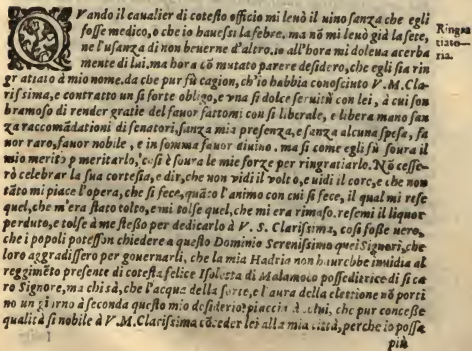 QVando il caualier di cotesto officio mi leuò il uino sanza che egli
fosse medico, o che io hauessi la febre. ma nō mi leuò già la sete,
ne l'usanza di non beuerne d'altro. io all'hora mi doleua acerba
mente di lui, ma hora cō mutato parere desidero, che egli sia rin
gratiato à mio nome. da che pur fù cagion, ch'io habbia conosciuto V. M. Cla-
rissima, e contratto un sì forte obligo, e vna sì dolce seruitù con lei, à cui son
bramoso di render gratie del fauor fattomi con sì liberale, e libera mano san
za raccomādationi di senatori, sanza mia presenza, e sanza alcuna spesa, fa
uor raro, fauor nobile, e in somma fauor diuino. ma sì come egli fù soura il
mio merito p meritarlo, così è soura le mie forze per ringratiarlo. Nō cesse-
rò celebrar la sua cortesia, e dir, che non vidi il volto, e uidi il core, e che non
tāto mi piace l'opera, che si fece, quāto l'animo con cui si fece, il qual mi rese
quel, che m'era stato tolto, e mi tolse quel, che mi era rimaso. resemi il liquor
perduto, e tolse à me stesso per dedicarlo à V. S. Clarissima, così fosse uero,
che i popoli potesson chiedere a questo Dominio Serenissimo quei Signori, che
loro aggradissero per gouernarli, che la mia Hadria non haurebbe inuidia al
reggimēto presente di cotesta felice Isoletta di Malamoco posseditrice di sì ca
ro Signore, ma chi sà, che l'acqua della sorte, e l'aura della elettione nō porti
no un giorno à seconda questo mio desiderio? piaccia à colui, che pur concesse
qualità sì nobile à V. M. Clarissima cōceder lei alla mia città, perche io possa
più
Ringra
tiato—
ria.